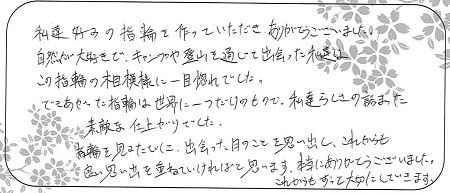 私達好みの指輪を作っていただき ありがとうございました。
自然が大好きで、キャンプや登山を通じて出会った私達は
この指輪の木目模様に一目惚れでした。
できあがった指輪は世界に一つだけのもので、私達らしさの詰まった
素敵な仕上がりでした。
指輪を見るたびに、出会った日のことを思い出し、これからも
良い思い出を重ねていければと思います。本当にありがとうございました。
これからもずっと大切にしていきます。